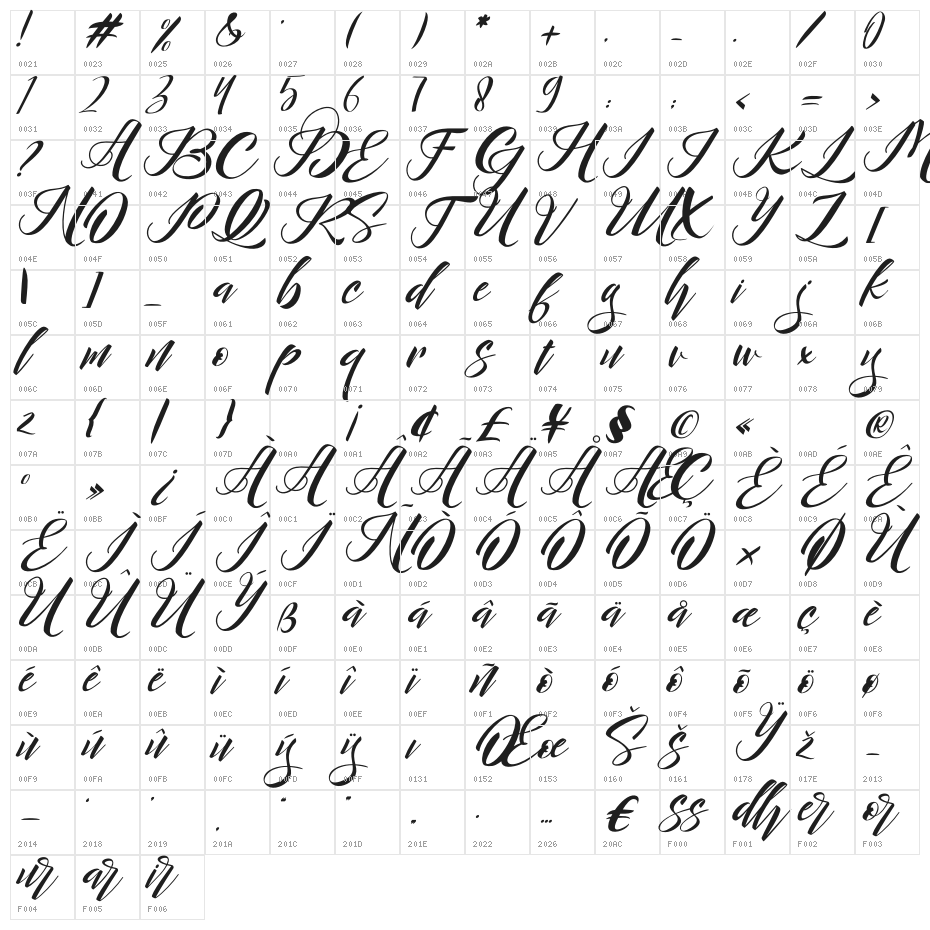 ! # % & ' ( ) * + , - . / 0
0021 0023 0025 0026 0027 0028 0029 002A 002B 002C 002D 002E 002F 0030
1 2 3 4 5 6 7 8 9 : ; < = >
0031 0032 0033 0034 0035 0036 0037 0038 0039 003A 003B 003C 003D 003E
? A B C D E F G H I J K L M
003F 0041 0042 0043 0044 0045 0046 0047 0048 0049 004A 004B 004C 004D
N O P Q R S T U V W X Y Z [
004E 004F 0050 0051 0052 0053 0054 0055 0056 0057 0058 0059 005A 005B
\ ] _ a b c d e f g h i j k
005C 005D 005F 0061 0062 0063 0064 0065 0066 0067 0068 0069 006A 006B
l m n o p q r s t u v w x y
006C 006D 006E 006F 0070 0071 0072 0073 0074 0075 0076 0077 0078 0079
z { | } ¡ ¢ £ ¥ § © « ®
007A 007B 007C 007D 00A0 00A1 00A2 00A3 00A5 00A7 00A9 00AB 00AD 00AE
° » ¿ À Á Â Ã Ä Å Æ Ç È É Ê
00B0 00BB 00BF 00C0 00C1 00C2 00C3 00C4 00C5 00C6 00C7 00C8 00C9 00CA
Ë Ì Í Î Ï Ñ Ò Ó Ô Õ Ö × Ø Ù
00CB 00CC 00CD 00CE 00CF 00D1 00D2 00D3 00D4 00D5 00D6 00D7 00D8 00D9
Ú Û Ü Ý ß à á â ã ä å æ ç è
00DA 00DB 00DC 00DD 00DF 00E0 00E1 00E2 00E3 00E4 00E5 00E6 00E7 00E8
é ê ë ì í î ï ñ ò ó ô õ ö ø
00E9 00EA 00EB 00EC 00ED 00EE 00EF 00F1 00F2 00F3 00F4 00F5 00F6 00F8
ù ú û ü ý ÿ ı Œ œ Š š Ÿ ž –
00F9 00FA 00FB 00FC 00FD 00FF 0131 0152 0153 0160 0161 0178 017E 2013
— ‘ ’ ‚ “ ” „ • … € ss dh er or
2014 2018 2019 201A 201C 201D 201E 2022 2026 20AC F000 F001 F002 F003
ur ar ir
F004 F005 F006